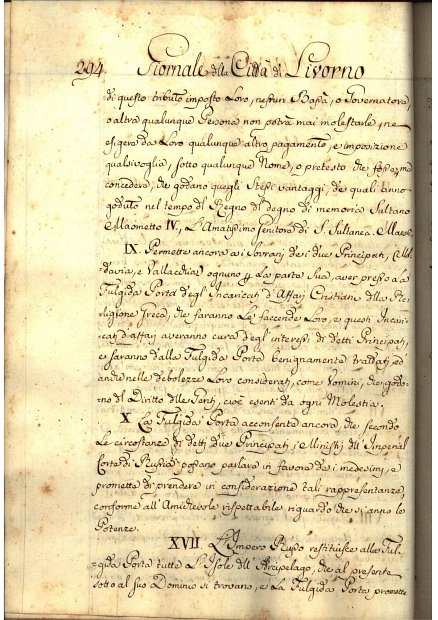 294. Giornale della Città di Livorno
di questo tributo imposto Loro, nessun Bassà, o Governatore,
o altra qualunque Persona non potrà mai molestarle, ne
esigere da Loro qualunque altro pagamento, e imposizione
qualsivoglia, sotto qualunque Nome, o pretesto che fosse, ma
concederà, che godano quegli Stessi vantaggi, de quali anno
goduto nel tempo del Regno del degno di memoria Sultano
Maometto IV, L'Amatissimo Genitore di S. Sultanea Maestà.
IX. Permette ancora ai Sovrani dei due Principati, Mol-
davia, e Vallacchia ognuno p La parte Sua, aver presso la
Fulgida Porta degl'Incaricati d'Affari Cristiani della Re-
ligione Greca, che faranno Le faccende Loro, e questi Incari-
cati d'affari averanno cura degl'interessi di detti Principati,
e saranno dalla Fulgida Porta benignamente trattati, ed
anche nelle debolezze Loro considerati, come Uomini, che godo-
no del Diritto delle Genti, cioè esenti da ogni Molestia;
X La Fulgida Porta acconsente ancora, che secondo
Le circostanze di detti due Principati, i Ministri dell'Imperial
Corte di Russia possano parlare in favore de i medesimi, e
promette di prendere in considerazione tali rappresentanze,
conforme all'Amichevole rispettabile riguardo che si anno le
Potenze.
XVII L'Impero Russo restituisce alla Ful-
gida Porta tutte L'Isole dell'Arcipelago, che al presente
sotto al suo Dominio si trovano, e La Fulgida Porta promette